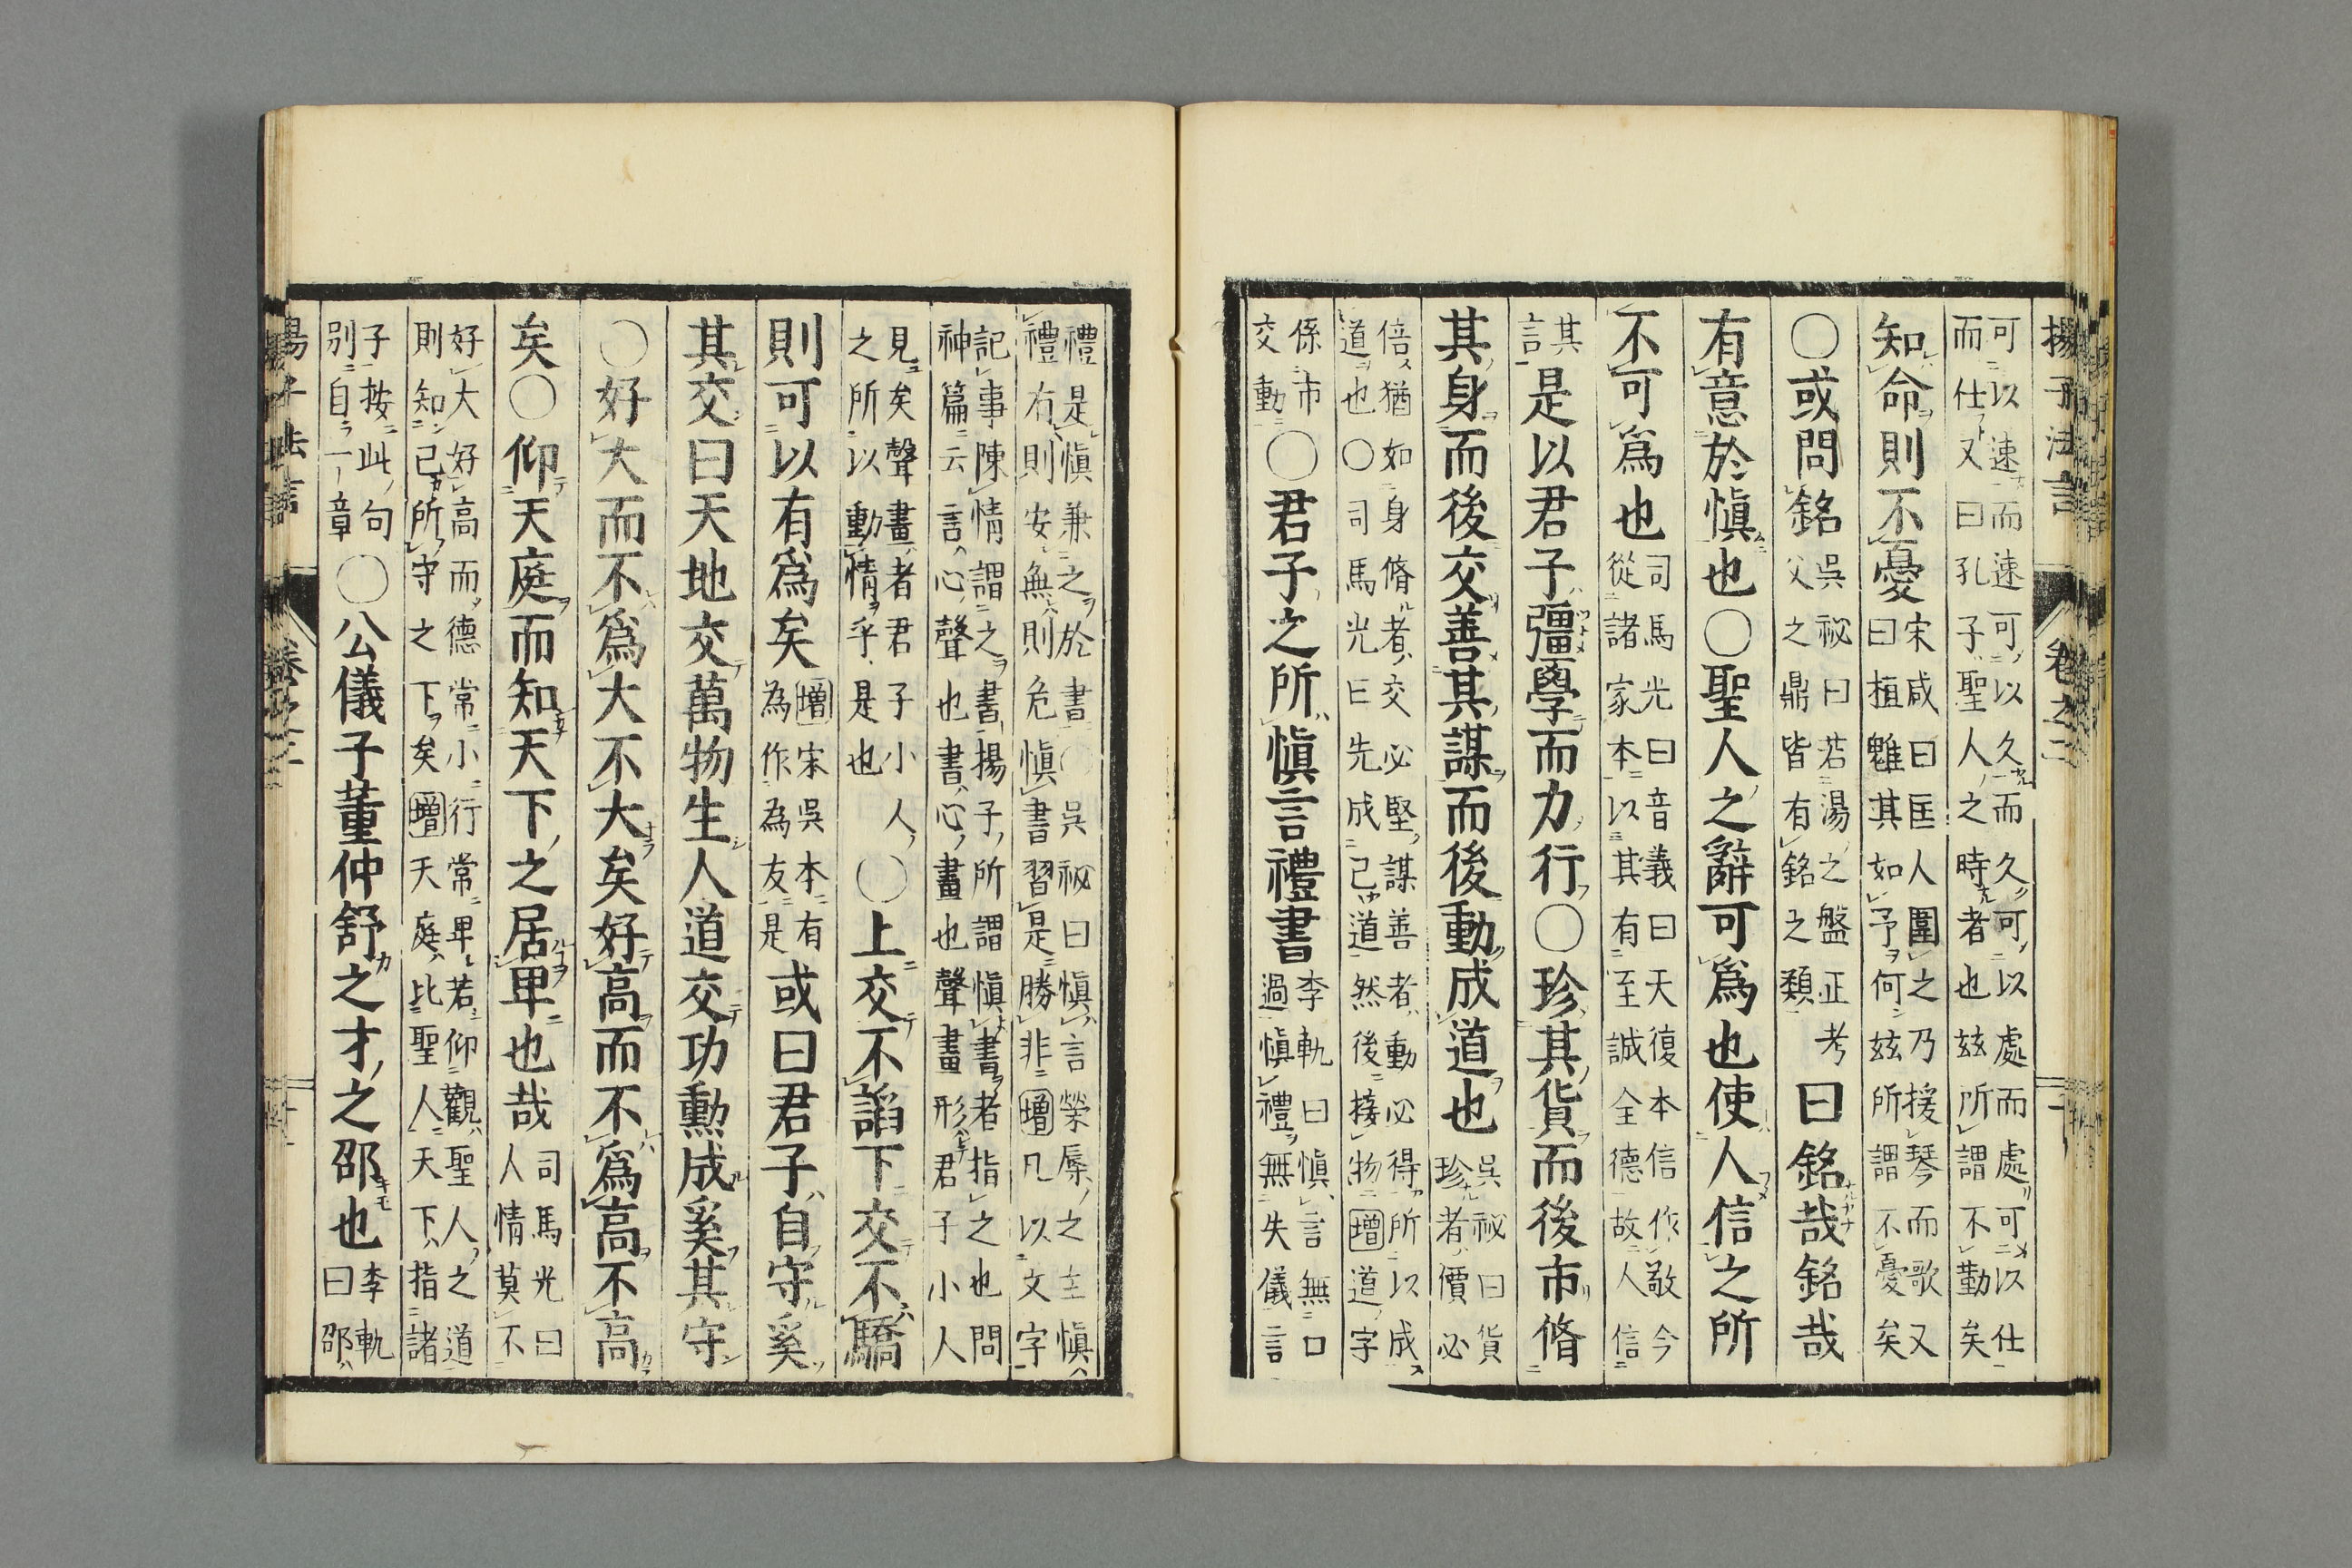 揚子法言 卷之二
可以速而速可以久而久可以處而處可以仕
而仕又曰孔子聖人之時者也茲所謂不勤矣
知命則不憂
宋咸曰匡人圍之乃援琴而歌又
曰桓魋其如予何茲所謂不憂矣
○或問銘
吳祕曰若湯之盤正考
父之鼎皆有銘之類
曰銘哉銘哉
有意於愼也○聖人之辭可爲也使人信之所
不可爲也
司馬光曰音義曰天復本信作敬今
從諸家本以其有至誠全德故人信
其
言
是以君子彊學而力行○珍其貨而後市脩
其身而後交善其謀而後動成道也
吳祕曰貨
珍者價必
倍猶如身脩者交必堅謀善者動必得所以成
道也○司馬光曰先成己道然後接物增道字
係市
交動
○君子之所愼言禮書
李軌曰愼言無口
過愼禮無失儀言
禮是愼兼之於書○吳祕曰愼言榮辱之主愼
禮有則安無則危愼書習是勝非增凡以文字
記事陳情謂之書揚子所謂愼書者指之也問
神篇云言心聲也書心畫也聲畫形君子小人
見矣聲畫者君子小人
之所以動情乎是也
○上交不諂下交不驕
則可以有爲矣
增宋吳本有
為作為友是
或曰君子自守奚
其交曰天地交萬物生人道交功勳成奚其守
○好大而不爲大不大矣好高而不爲高不高
矣○仰天庭而知天下之居卑也哉
司馬光曰
人情莫不
好大好高而德常小行常卑若仰觀聖人之道
則知己所守之下矣增天庭比聖人天下指諸
子按此句
別自一章
○公儀子董仲舒之才之邵也
李軌
曰邵